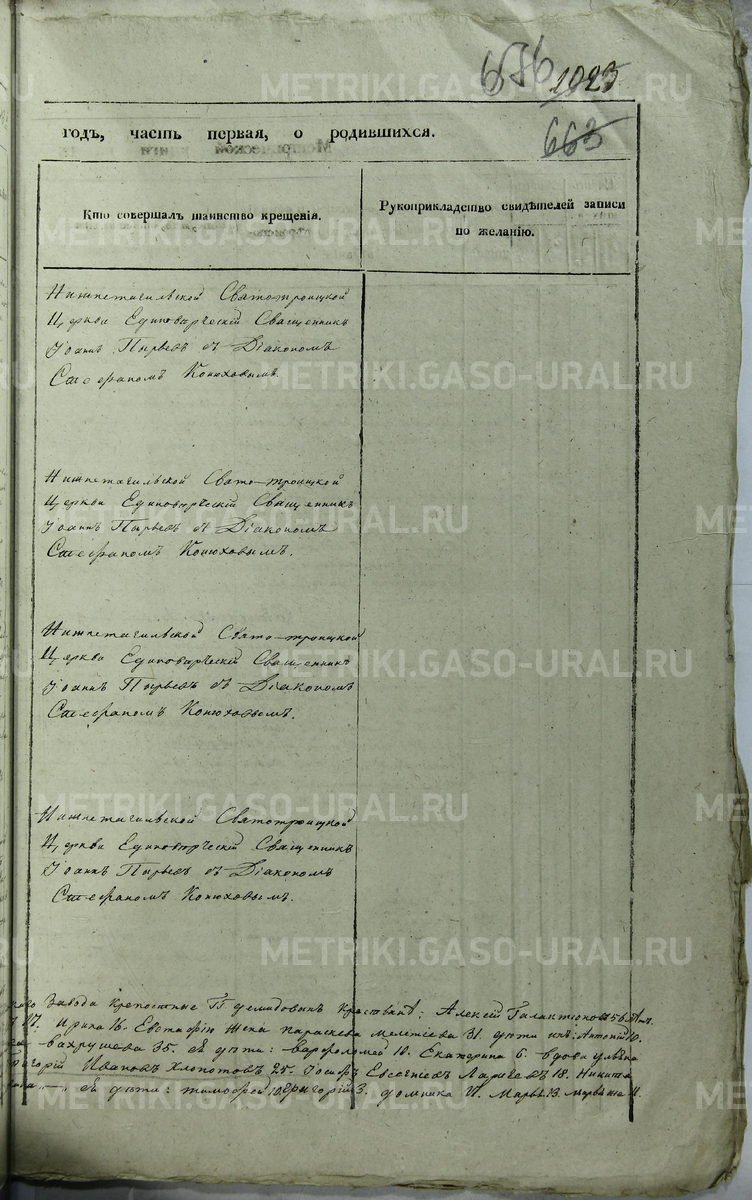 676 1025
663
годъ, часть первая, о родившихся.
Кто совершалъ таинство крещенія.
Рукоприкладство свидѣтелей записи по желанію.
Нижнетагильской Святотроицкой
Церкви Единовѣрческій Священникъ
Іоаннъ Пырьевъ съ Діакономъ
Стефаномъ Конюховымъ.
Нижнетагильской Свято-троицкой
Церкви Единовѣрческій Священникъ
Іоаннъ Пырьевъ съ Діакономъ
Стефаномъ Конюховымъ.
Нижнетагильской Свято-троицкой
Церкви Единовѣрческій Священникъ
Іоаннъ Пырьевъ съ Діакономъ
Стефаномъ Конюховымъ.
Нижнетагильской Святотроицкой
Церкви Единовѣрческій Священникъ
Іоаннъ Пырьевъ съ Діакономъ
Стефаномъ Конюховымъ.
Завода крепостные Гг Демидовыхъ Крестьяне: Алексей Галактіоновъ 56.
17. Ирина 16. Евстафію жена параскева мелетіева 31. дети ихъ: Антоній 10.
вахрушева 35. Ея дети: варфоломей 10. Екатерина 6. вдова ульяна
григорій Ивановъ Хлопотовъ 25. Іосифъ Евсегніевъ 18. Никита
Ея дети: тимофей 10. григорій 3. домника 11. Марѳа 13.
METRIKI.GASO-URAL.RU